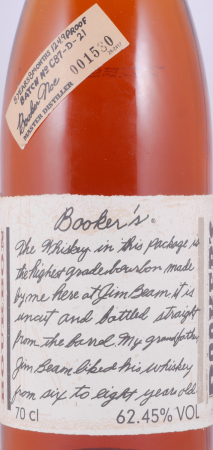 8 YEARS 8 MONTHS 124.9 PROOF
BATCH No C87-D-21
001530
Booker Noe
MASTER DISTILLER
Booker's®
The Whiskey in this package is
the highest grade bourbon made
by me here at Jim Beam it is
uncut and bottled straight
from the barrel. My grandfather,
Jim Beam liked his whiskey
from six to eight years old.
70 cl
62.45% VOL